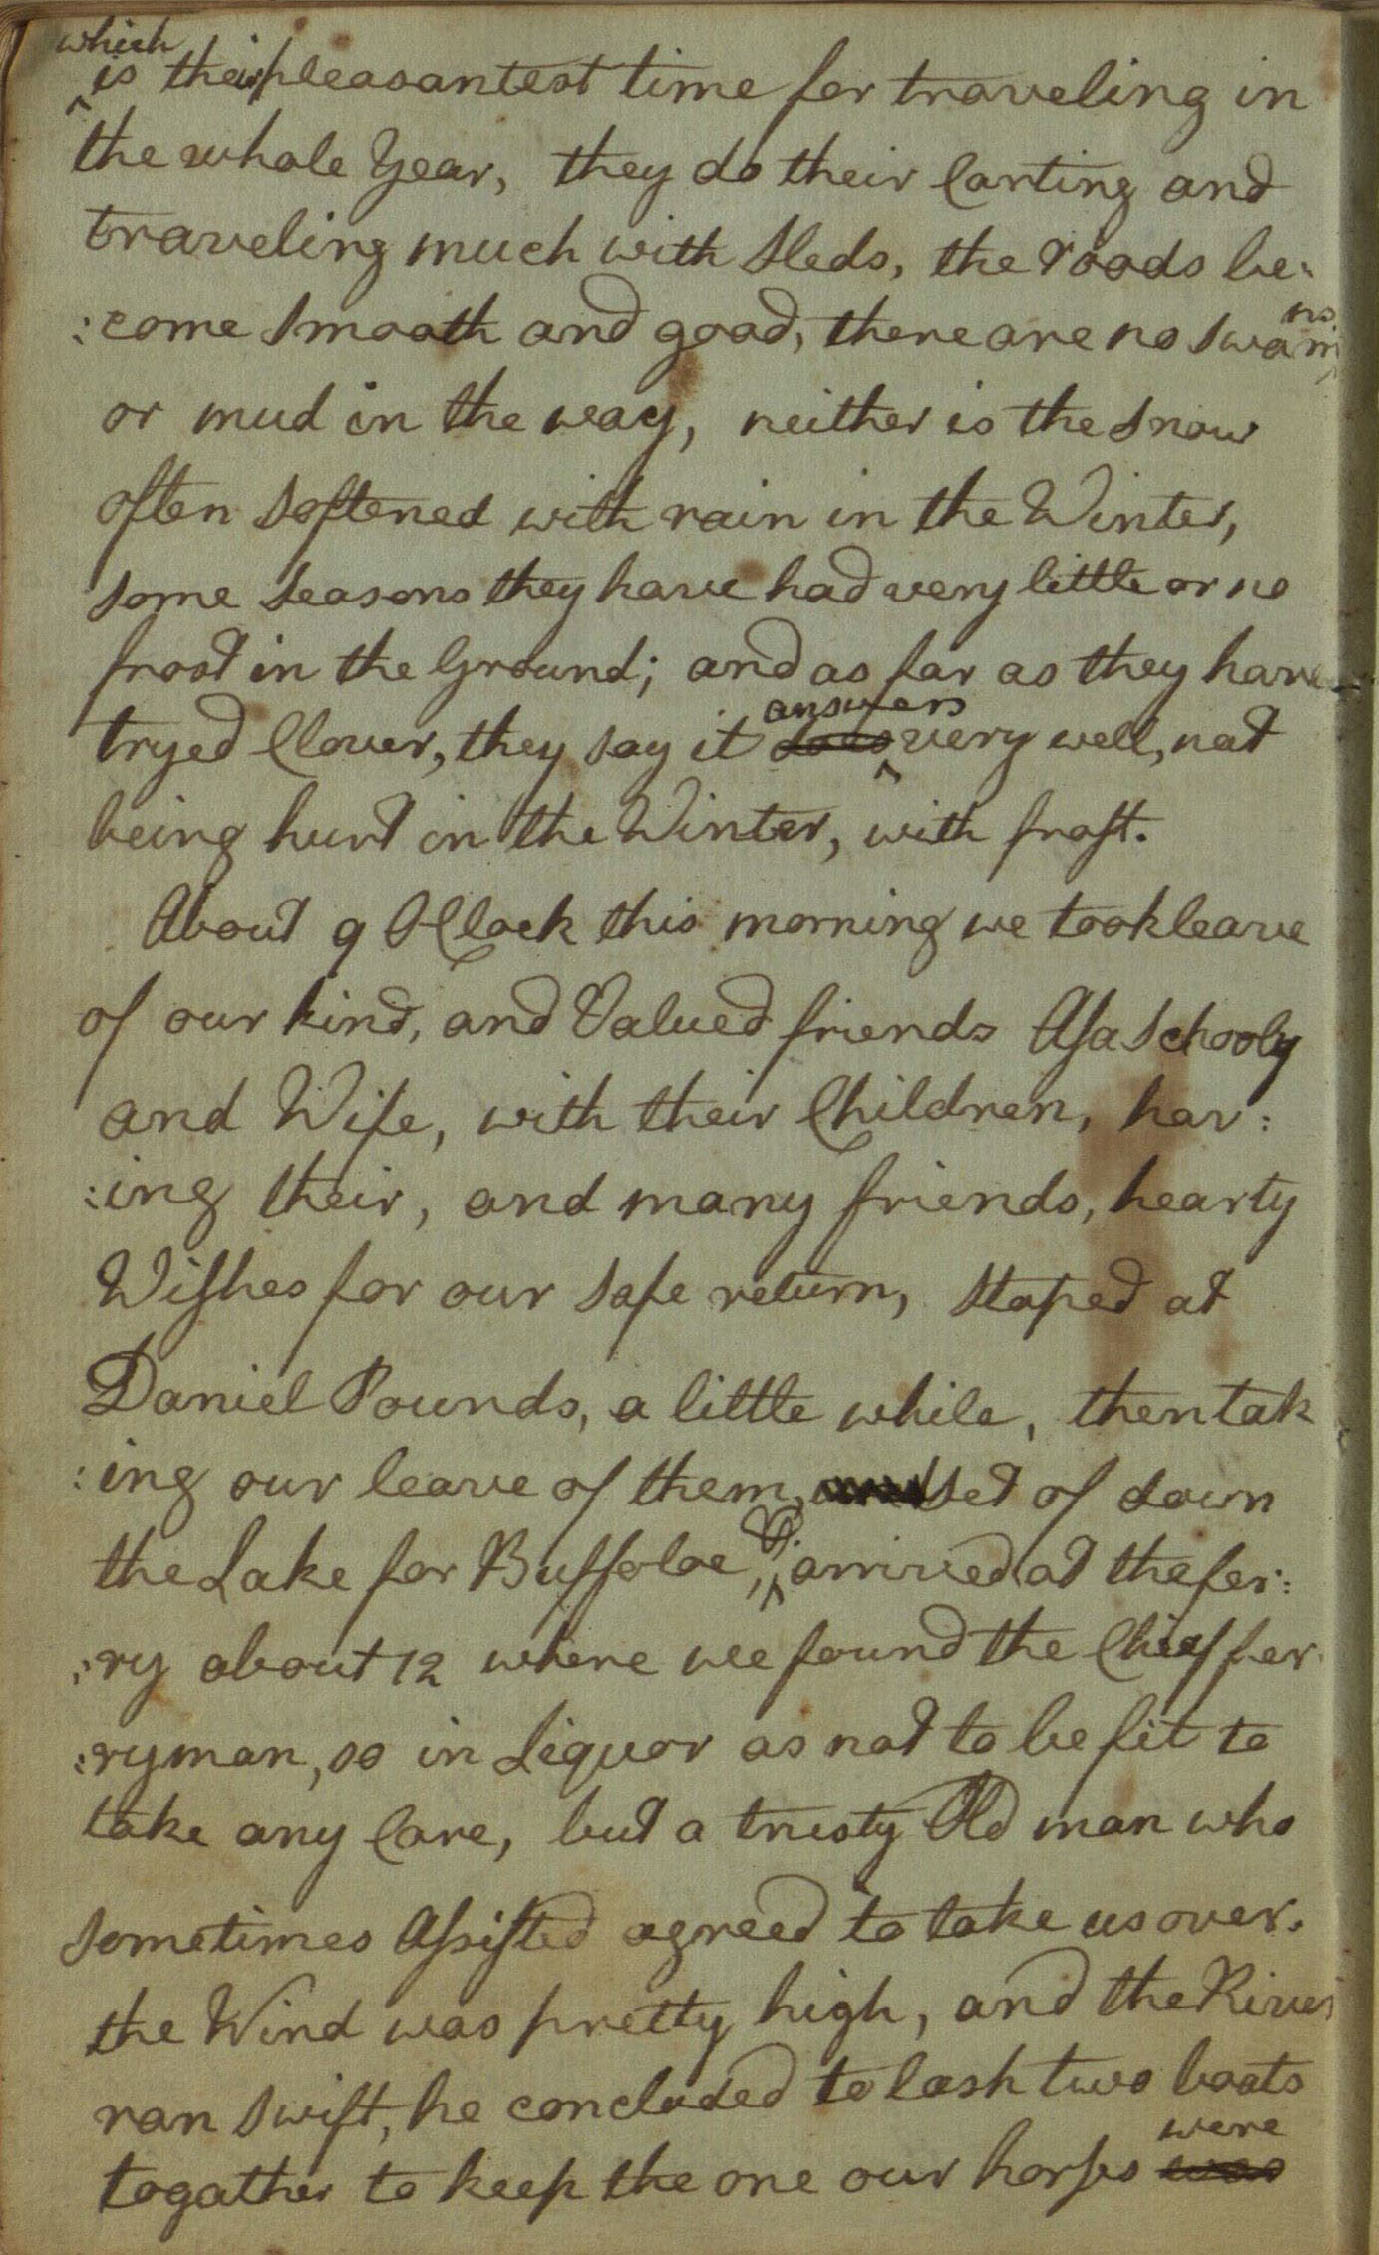 which
is their pleasantest time for traveling in
the whole Year, they do their Carting and
traveling much with Sleds, the roads be:
:come Smooth and good, there are no Swam
or mud in the way, neither is the Snow
often Softened with rain in the Winter,
Some Seasons they have had very little or no
frost in the Ground; and as far as they have
answers
tryed Clover, they say it does very well, not
being hurt in the Winter, with frost.
About 9 OClock this morning we took leave
of our kind, and Valued friends Asa Schooly
and Wife, with their Children, hav:
:ing their, and many friends, hearty
Wishes for our Safe return, Stoped at
Daniel Pounds, a little while, then tak
:ing our leave of them, and Set of down
the Lake for Buffoloe, & arrived at the fer:
:ry about 12 where wee found the Chief fer
:ryman, so in Liquor as not to be fit to
take any Care, but a trusty Old man who
Sometimes Assisted agreed to take us over.
the Wind was pretty high, and the River
ran Swift, he concluded to lash two boats
were
togather to keep the one our horses was